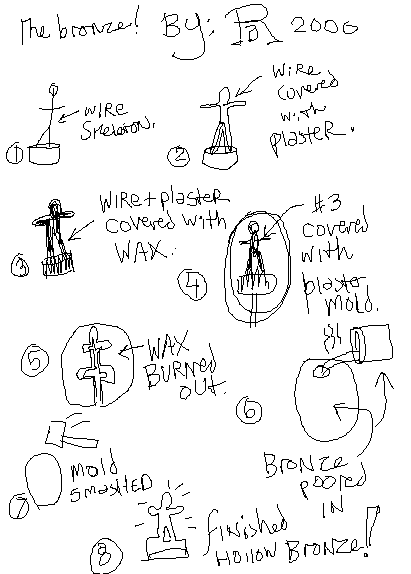 The bronze! By: R 2000
① WIRE
SKELETON.
② WIRE
COVERED
with
plaster.
③ WIRE + plaster
COVERED with
WAX.
④ #3
COVERED
with
plaster
MOLD.
⑤ WAX
BURNED
OUT.
⑥ BRONZE
pooled
IN
⑦ MOLD
SMASHED
⑧ finished
HOLLOW BRONZE!